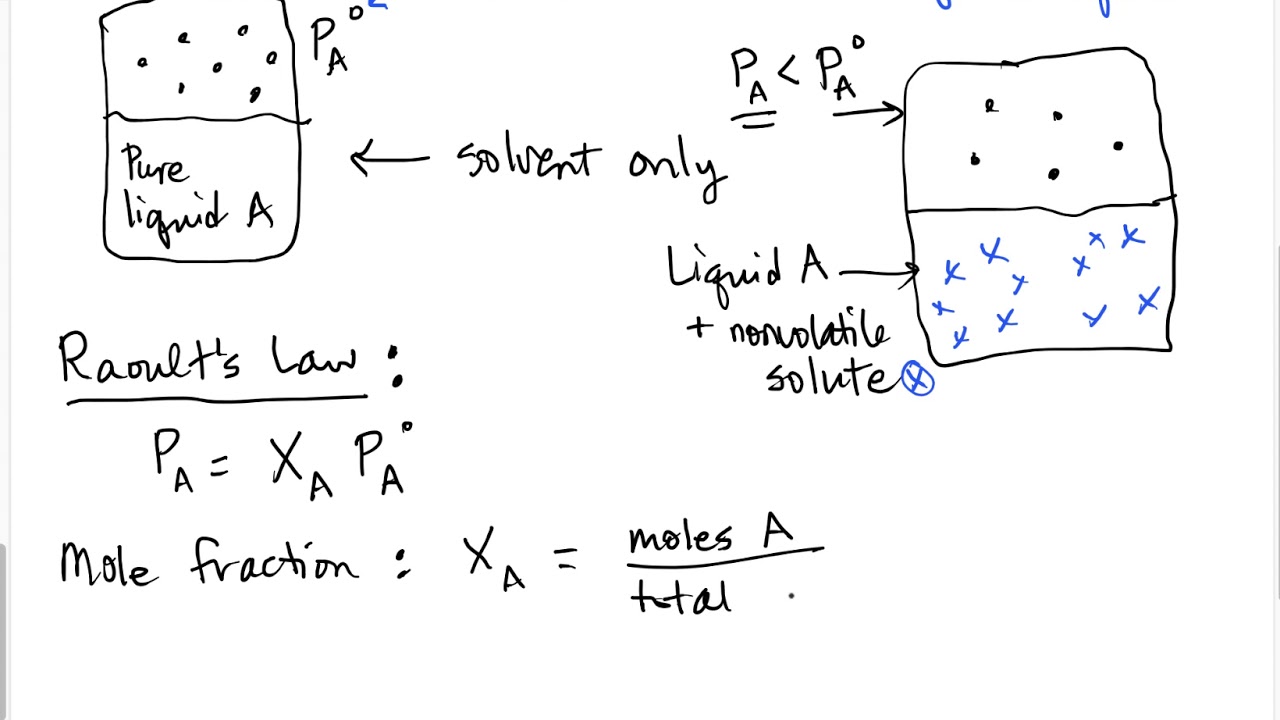 P_A°
P_A < P_A°
Pure
liquid A
← solvent only
Liquid A
+ nonvolatile
solute ⓧ
Raoult's Law :
P_A = X_A P_A°
Mole fraction : X_A = moles A
total